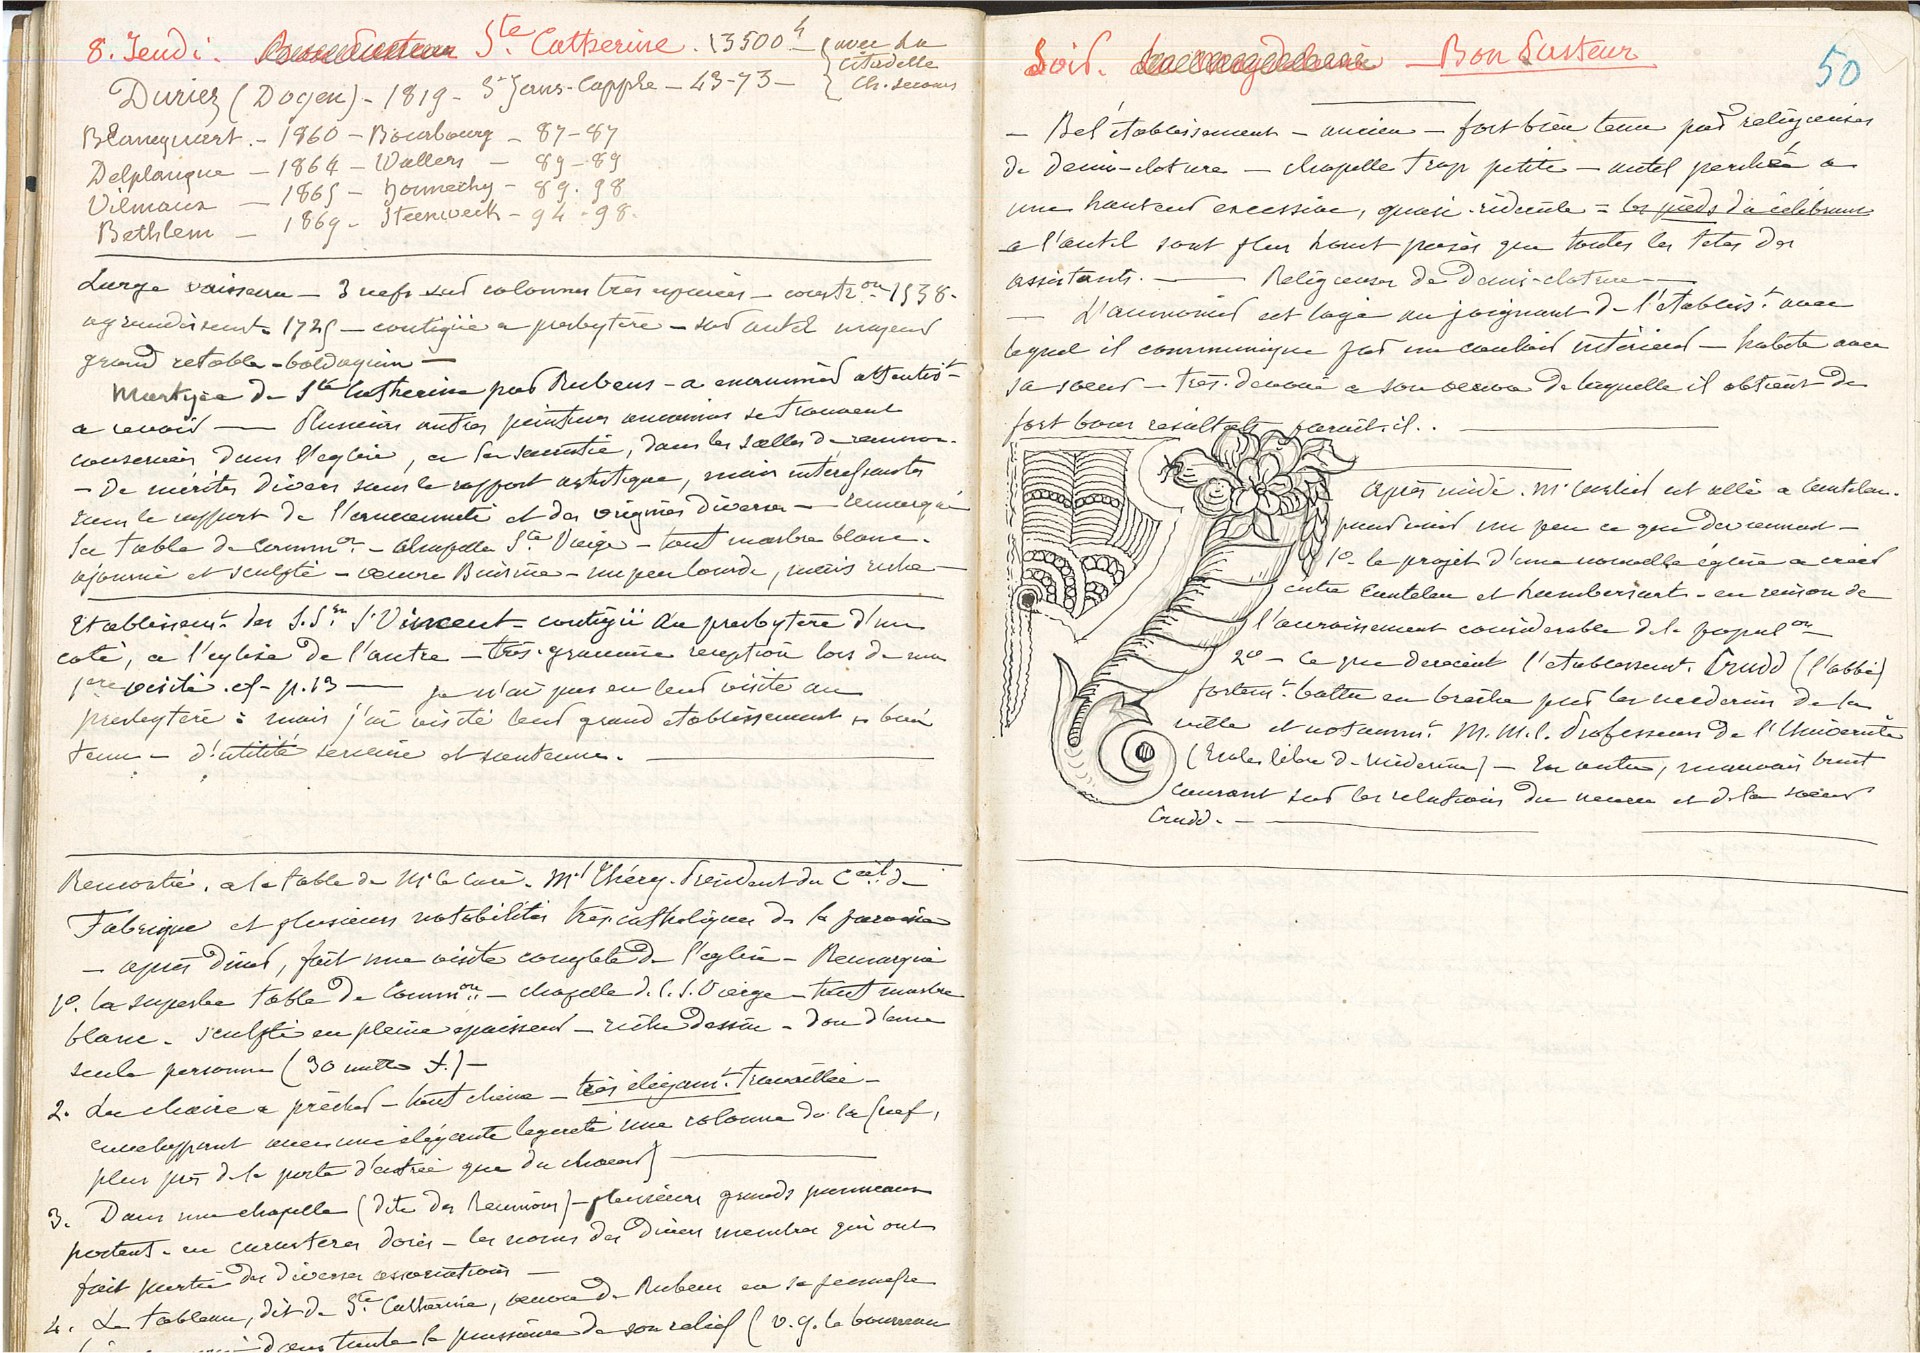 8. Jeudi. Ste Catherine. 13500 h
avec La
Citadelle
Ch. secours
Duriez (Doyen) - 1819 - St Jans-Cappele - 43-73 -
Blancquart - 1860 - Bourbourg - 87-87
Delplanque - 1864 - Wallers - 89-89
Vilmaux - 1865 - Honnechy - 89.98
Bethlem - 1869 - Steenwerk - 94-98.
Large vaisseau - 3 nefs sur colonnes très espacées - constron 1538.
agrandissent 1725 - contigüe a presbytère - sur autel majeur
grand retable - baldaquin -
Martyre de Ste Catherine par Rubens - a examiner attentivt
a revoir - Plusieurs autres peintures anciennes se trouvent
conservées dans l'église, a la sacristie, dans les salles de reunion.
- De mérites divers sous le rapport artistique, mais interessantes
sous le rapport de l'ancienneté et des origines diverses - remarqué
la table de Common - Chapelle Ste Vierge - tout marbre blanc.
ajourné et sculpté - oeuvre Buisine - un peu lourde, mais riche -
Etablissemt des S.S. St Vincent - contigüe au presbytère d'un
coté, a l'eglise de l'autre - très gracieuse reception lors de ma
1ere visite. cf. p. 13 - je n'ai pas eu leur visite au
presbytère : mais j'ai visité leur grand etablissement bien
tenu - d'utilité serieuse et soutenue.
Rencontré, a la table de Mr le curé - Mr Théry. President du Ceil de
Fabrique et plusieurs notabilités très catholiques de la paroisse
- après diner, fait une visite complète de l'eglise - Remarqué
1º. la superbe table de Common - chapelle d. l. S. Vierge - tout marbre
blanc - sculpté en pleine epaisseur - riche dessin - don d'une
seule personne (30 mille f.) -
2. La chaire a prêcher - tout chêne - très élegamt travaillée -
enveloppant avec une élégante legereté une colonne de la (nef,
plus près de la porte d'entrée que du choeur)
3. Dans une chapelle (dite des Reunions) - plusieurs grands panneaux
portent - en caracteres dorés - les noms des divers membres qui ont
fait partie des diverses associations -
4. Le tableau, dit de Ste Catherine, oeuvre de Rubens en sa jeunesse
dans toute la puissance de son relief (v.g. le bourreau
Soir. Bon Pasteur
50
- Bel établissement - ancien - fort bien tenu par religieuses
de demi-cloture - chapelle trop petite - autel perché a
une hauteur excessive, quasi-ridicule = les pieds du célébrant
a l'autel sont plus haut posés que toutes les têtes des
assistants. - Religieuses de demi-cloture -
- L'aumonier est logé au joignant de l'établist avec
lequel il communique par un couloir intérieur - habite avec
sa soeur - très devoué a son oeuvre de laquelle il obtient de
fort bons résultats parait-il..
Après midi. Mr est allé a Canteleu.
pour voir un peu ce que devenaient -
1º- le projet d'une nouvelle église a créer
entre Canteleu et Lambersart - en raison de
l'accroissement considerable de la populon
2º - Ce que devient l'etablissemt. Crudd (l'abbé)
fortemt battu en brèche par les medecins de la
ville et notammt M. M. l. Professeurs de l'Université
(Ecoles libre de Médecine) - En outre, mauvais bruit
courant sur les relations du neveu et de la soeur
Crudd. -